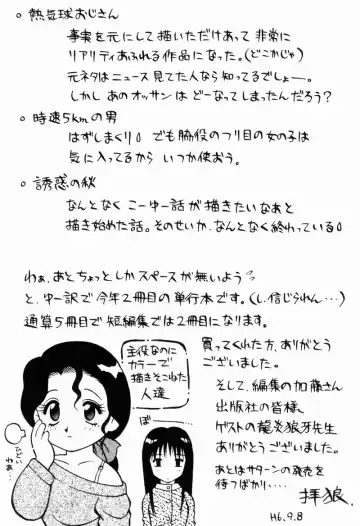 ○ 熱気球おじさん
事実を元にして描いただけあって 非常に
リアリティあふれる作品になった。(どこがじゃ)
元ネタはニュース見てた人なら知ってるでしょー。
しかし あのオッサンは どーなってしまったんだろう?
○ 時速5kmの男
はずしまくり。 でも脇役のつり目の女の子は
気に入ってるから いつか使おう。
○ 誘惑の秋
なんとなく こーゆー話が描きたいなあと
描き始めた話。そのせいか、なんとなく終わっている。
わぁ、あとちょっとしかスペースが無いよう
と、ゆー訳で今年2冊目の単行本です。(し、信じらんねー…)
通算5冊目で短編集では2冊目になります。
買ってくれた方、ありがとう
ございました。
そして、編集の加藤さん
出版社の皆様、
ゲストの龍炎狼牙先生
ありがとうございました。
あとはサターンの発売を
待つばかり…。
拝狼
H6.9.8
主役なのに
カラーで
描きそこねた
人達
ぼ
ひどい
わぁ…